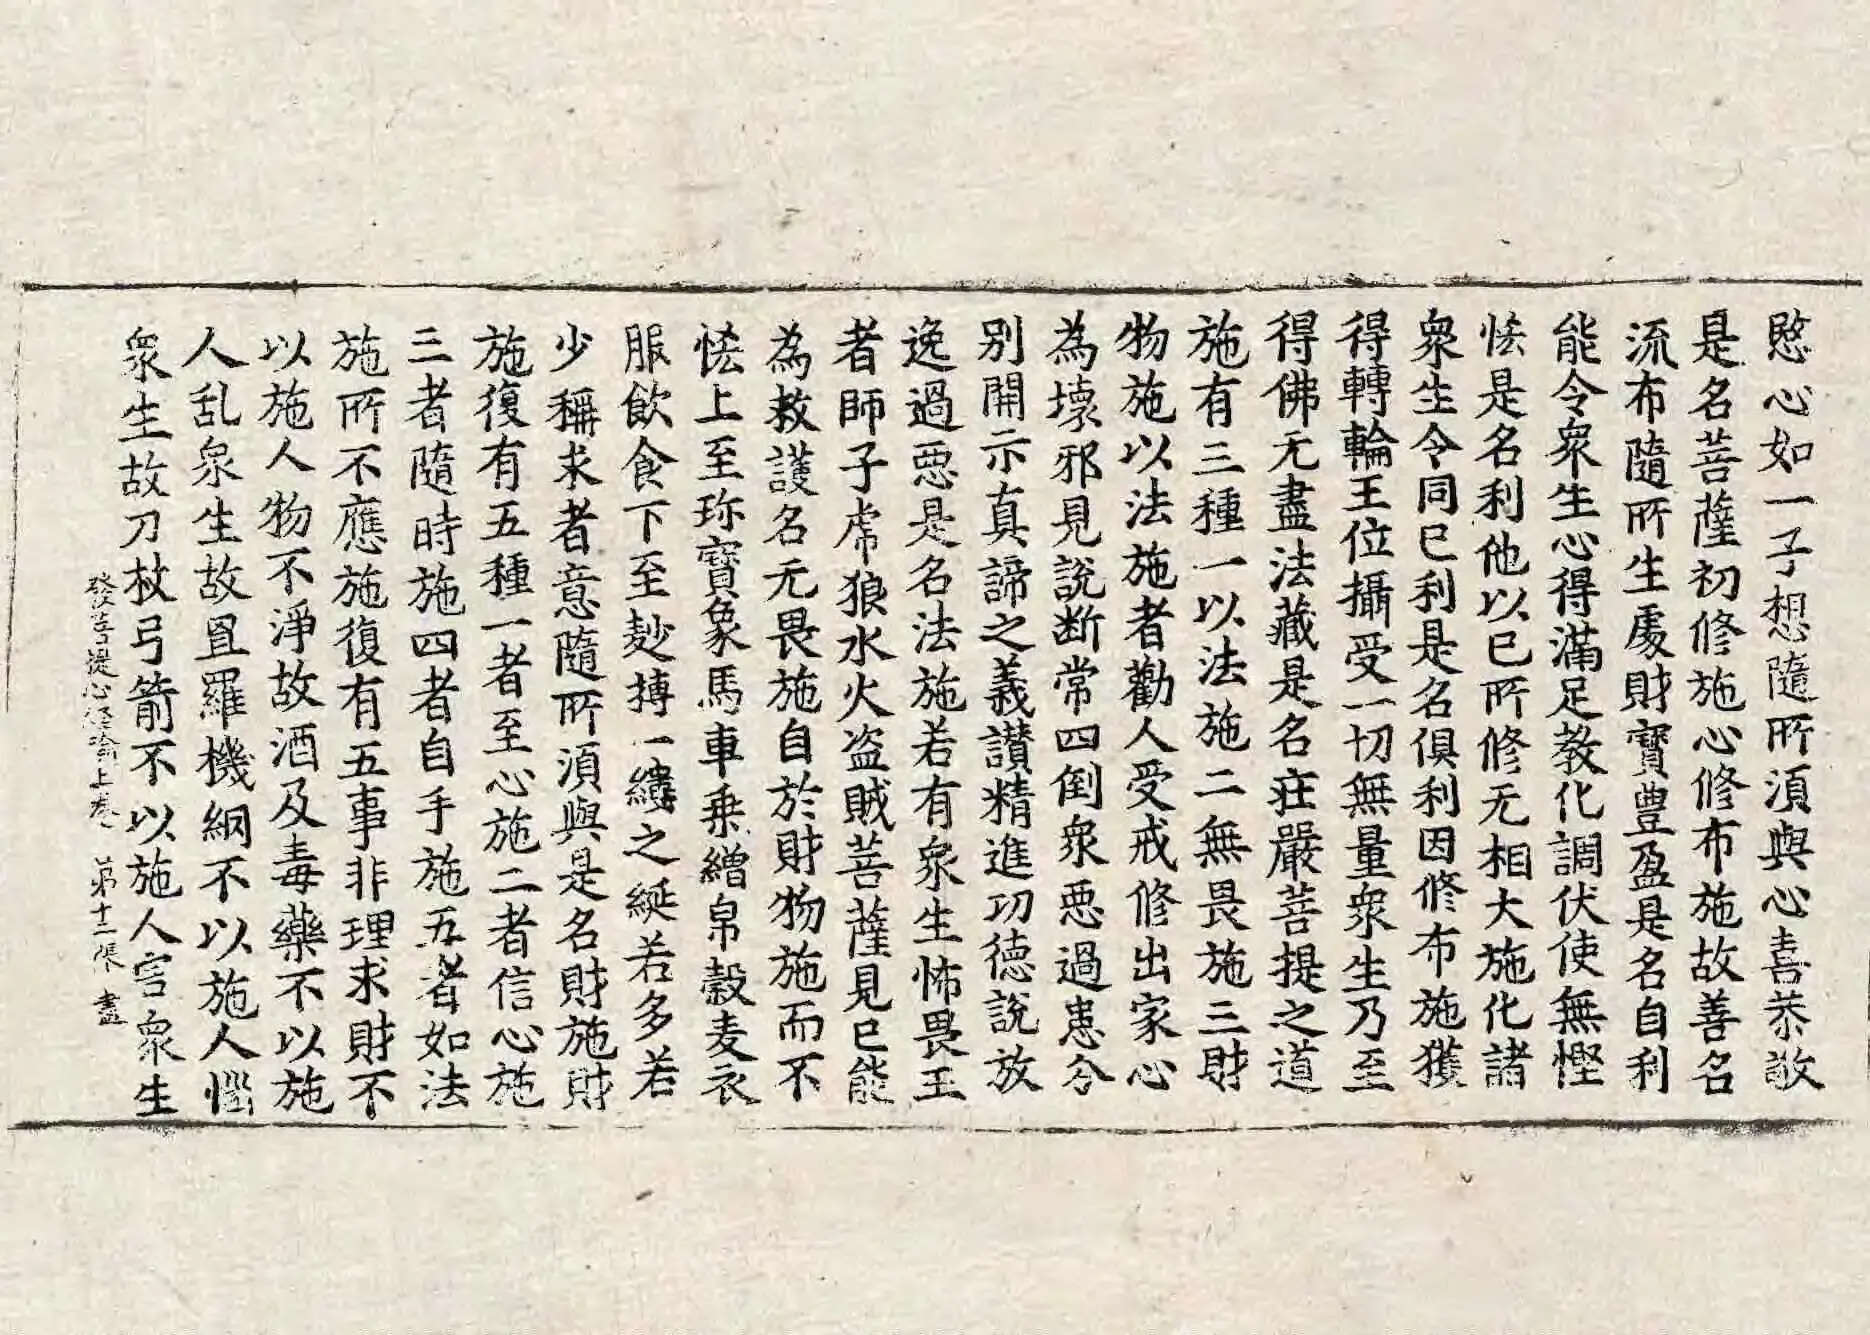 愍心如一子想隨所須與心喜恭敬
是名菩薩初修施心修布施故善名
流布隨所生處財寶豊盈是名自利
能令衆生心得滿足教化調伏使無慳
悋是名利他以已所修无相大施化諸
衆生令同已利是名俱利因修布施獲
得轉輪王位攝受一切無量衆生乃至
得佛无盡法藏是名莊嚴菩提之道
施有三種一以法施二無畏施三財
物施以法施者勸人受戒修出家心
為壞邪見說斷常四倒衆惡過患分
別開示真諦之義讃精進功德說放
逸過惡是名法施若有衆生怖畏王
者師子虎狼水火盗賊菩薩見已能
為救護名无畏施自於財物施而不
悋上至珎寶象馬車乗繒帛穀麦衣
服飲食下至麨摶一縷之綖若多若
少稱求者意隨所須與是名財施財
施復有五種一者至心施二者信心施
三者隨時施四者自手施五者如法
施所不應施復有五事非理求財不
以施人物不淨故酒及毒藥不以施
人乱衆生故罝羅機網不以施人惱
衆生故刀杖弓箭不以施人害衆生
發菩提心經論上卷 第十二張 盡